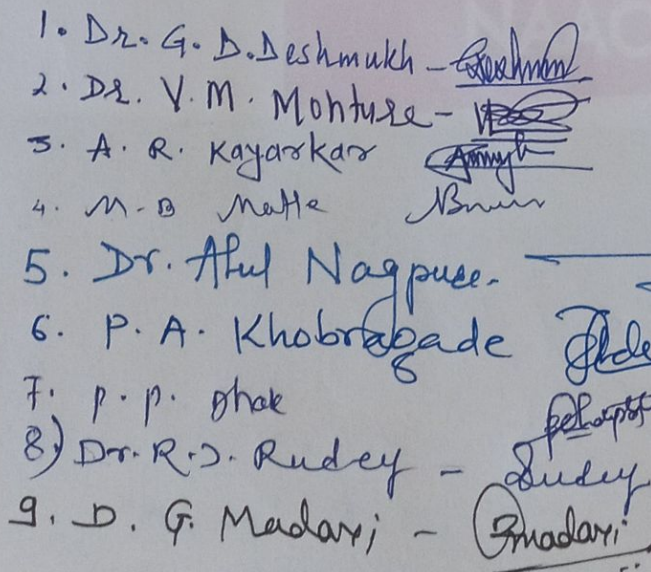 NAAC
1. Dr. G. D. Deshmukh -
2. Dr. V. M. Monture -
3. A. R. Kayarkar
4. M. B Matte
5. Dr. Atul Nagpure.
6. P. A. Khobragade
7. P. P. Dhak
8) Dr. R. J. Rudey - Rudey
9. D. G. Madavi - Gmadavi